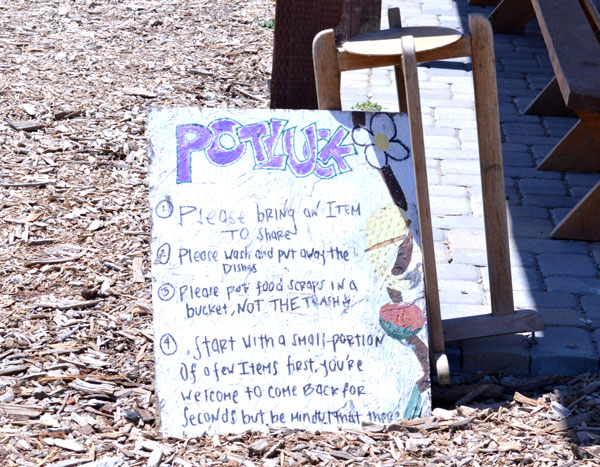 POTLUCK
① Please bring an Item
to share
② Please wash and put away the
Dishes
③ Please put food scraps in a
bucket, NOT THE TRASH
④ Start with a small-portion
of a few Items first, you're
welcome to come back for
seconds but be mindful that there